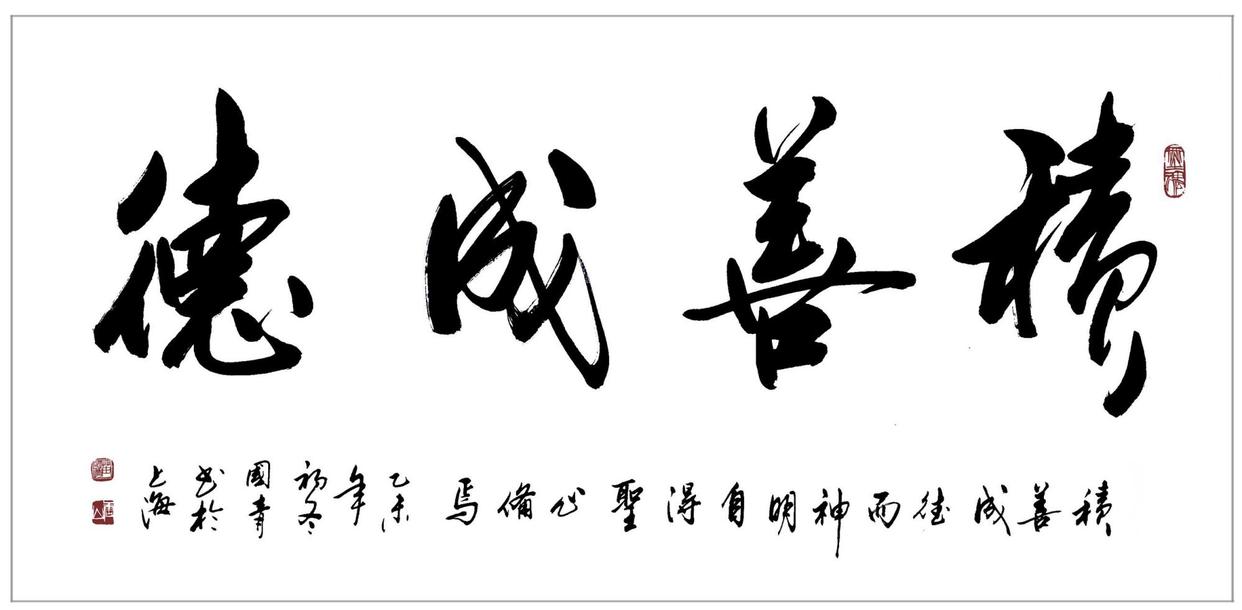 積善成德
積善成德而神明自得聖心備焉
乙未
年
初冬
國青
书於
上海